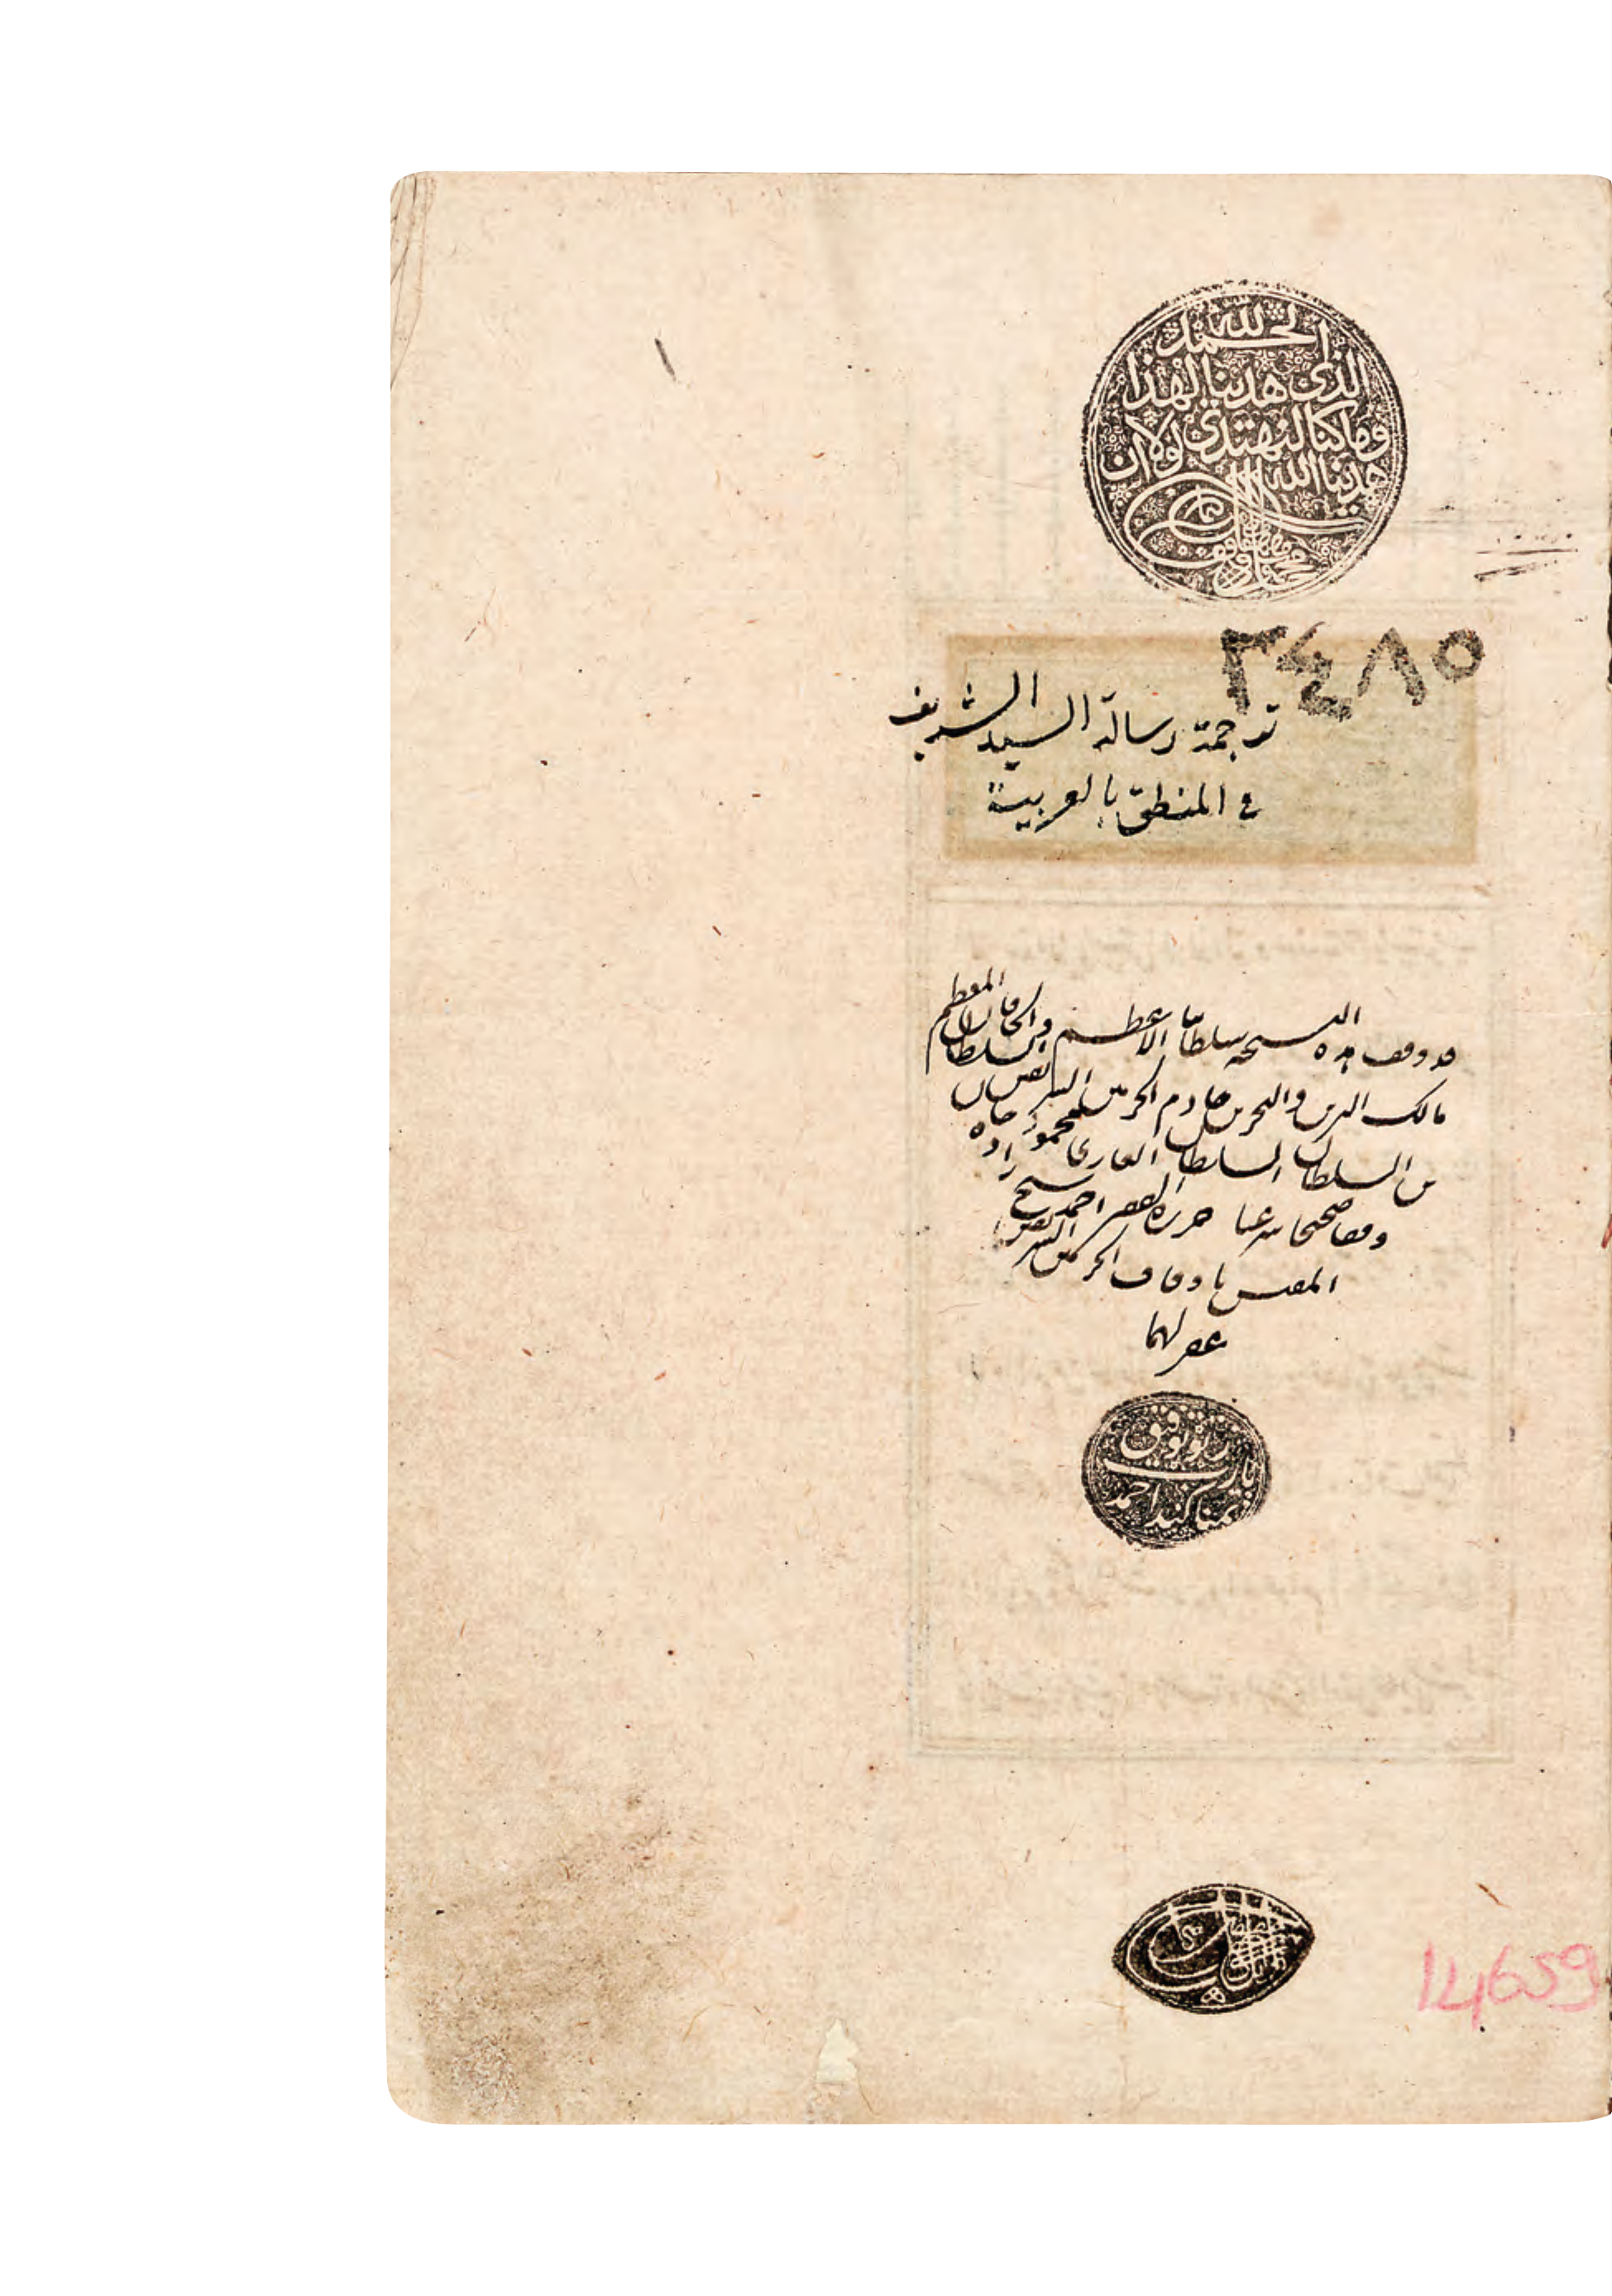 الحمد لله
الذى هدينا لهذا
وما كنا لنهتدي لولا ان
هدينا الله
٢٤٨٥
ترجمة رسالة السيد الشريف
في المنطق بالعربية
قد وقف هذه النسخة سلطاننا الاعظم والخاقان المعظم
مالك البرين والبحرين خادم الحرمين الشريفين السلطان
بن السلطان السلطان الغازى محمود خان
وقفا صحيحا شرعيا حرره الفقير احمد شيخ زاده
المفتش باوقاف الحرمين الشريفين
غفر لهما
ز تو توفيق
يا رب
تمنا كند احمد
14659